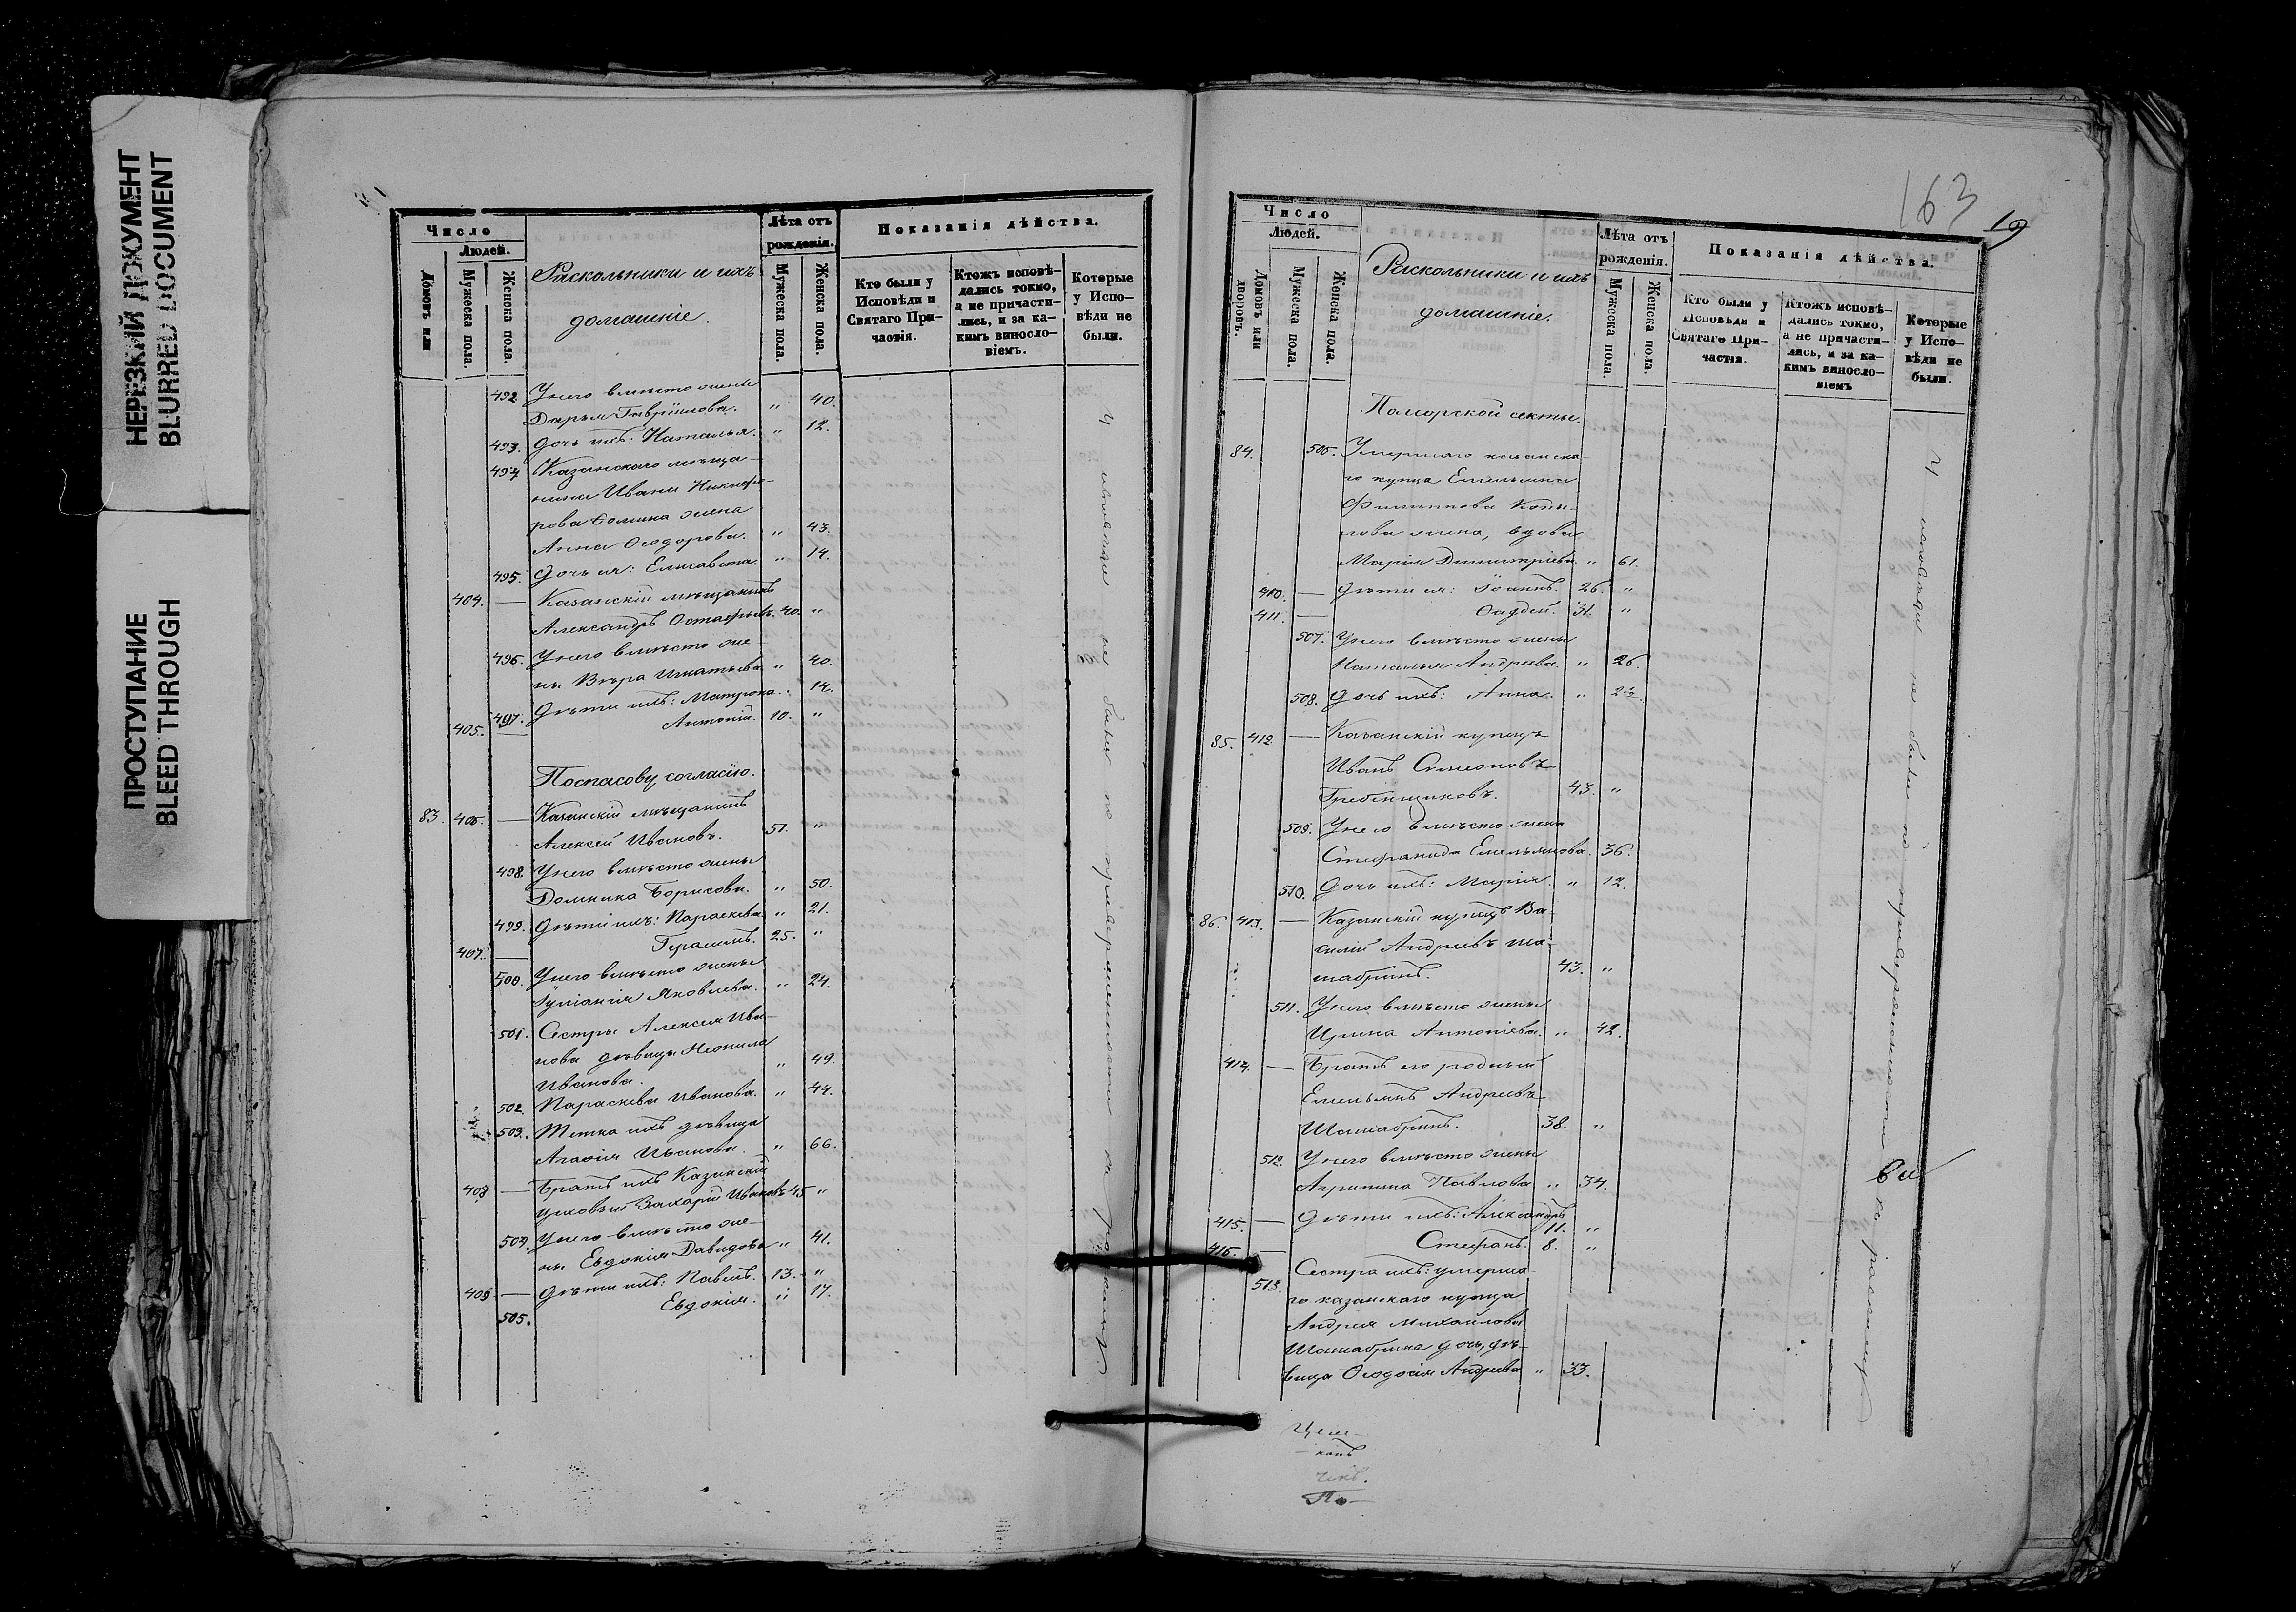 НЕРЕЗКИЙ ДОКУМЕНТ
BLURRED DOCUMENT
ПРОСТУПАНИЕ
BLEED THROUGH
Число
Людей.
Домовъ или
Мужеска пола.
Женска пола.
Раскольники и ихъ
домашніе.
Лѣта отъ
рожденія.
Мужеска пола.
Женска пола.
Показанія дѣйства.
Кто были у
Исповѣди и
Святаго При-
частія.
Ктожъ исповѣ-
дались токмо,
а не причасти-
лись, и за ка-
кимъ винось-
віемъ.
Которые
у Испо-
вѣди не
были.
492. У него вмѣсто жены
Дарья Гаврiилова. " 40.
493. Дочь ихъ: Наталья. " 12.
494. Казанскаго мѣща-
нина Ивана Никифо-
рова Сомина жена
Анна Ѳеодорова. " 43.
495. Дочь ея: Елисавета. " 14.
404. — Казанскій мѣщанинъ
Александръ Остафьевъ. 40. "
496. У него вмѣсто же-
ны Вѣра Игнатьева " 40.
497. Дѣти ихъ: Матрона. " 14.
405. — Антоній. 10. "
По спасову согласію.
83. 406. — Казанскій мѣщанинъ
Алексей Ивановъ. 51. "
498. У него вмѣсто жены
Домника Борисова. " 50.
499. Дѣти ихъ: Параскева. " 21.
407. — Герасимъ. 25. "
500. У него вмѣсто жены
Іуліанія Яковлева. " 24.
501. Сестры Алексея Ива-
нова дѣвицы Неонила
Иванова. " 49.
502. Параскева Иванова. " 44.
503. Тетка ихъ дѣвица
Агафія Иванова. " 66.
408. — Братъ ихъ Казанскій
цеховый Захарій Ивановъ 45 "
504. У него вмѣсто же-
ны Евдокія Давидова " 41.
409. — Дѣти ихъ: Павелъ. 13. "
505. Евдокія. " 17.
У исповѣди не были по приверженности къ расколу.
163
19
Число
Людей.
Домовъ или
дворовъ.
Мужеска пола.
Женска пола.
Раскольники и ихъ
домашніе.
Лѣта отъ
рожденія.
Мужеска пола.
Женска пола.
Показанія дѣйства.
Кто были у
Исповѣди и
Святаго При-
частія.
Ктожъ исповѣ-
дались токмо,
а не причасти-
лись, и за ка-
кимъ виносло-
віемъ
Которые
у Испо-
вѣди не
были.
Поморской секты.
84. 506. Умершаго казанска-
го купца Емельяна
Филиппова Копы-
лова жена, вдова
Марія Димитріева. " 61.
410. — Дѣти ея: Іоаннъ. 26. "
411. — Ѳаддей. 31. "
507. У него вмѣсто жены
Наталья Андреева. " 26.
508. Дочь ихъ: Анна. "
85. 412. — Казанскій купецъ
Иванъ Симеоновъ
Гребенщиковъ. 43. "
509. У него вмѣсто жены
Стефанида Емельянова. 36.
510. Дочь ихъ: Марія. " 12.
86. 413. — Казанскій купецъ Ва-
силій Андреевъ Ша-
шабринъ. 43. "
511. У него вмѣсто жены
Ирина Антоніева. " 42.
414. — Братъ его родный
Емельянъ Андреевъ
Шашабринъ. 38. "
512. У него вмѣсто жены
Агрипина Павлова " 34.
415. — Дѣти ихъ: Александръ
11. "
416. — Стефанъ. 8. "
513. Сестра ихъ: умерша-
го казанскаго купца
Андрея Михайлова
Шашабрина дочь, дѣ-
вица Ѳеодосія Андреева " 33.
У исповѣди не были по приверженности къ расколу.
По-